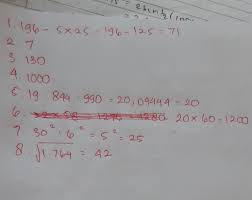 1. 196 - 5 x 25 = 196 - 125 = 71
2. 7
3. 130
4. 1000
5. 19 844 : 990 = 20,04444 = 20
6. 20 x 60 = 1200
7. 30² : 6² = 5² = 25
8. √1.764 = 42